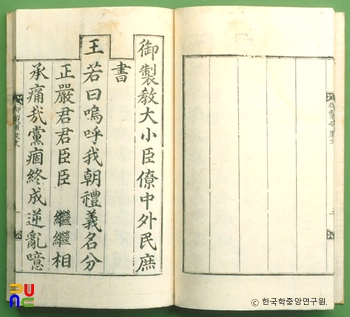 御製敎大小臣僚中外民庶
書
王
若曰嗚呼我朝禮義名分
正嚴君君臣臣 繼繼相
承痛哉黨痼終成逆亂噫
ⓒ 한국학중앙연구원.